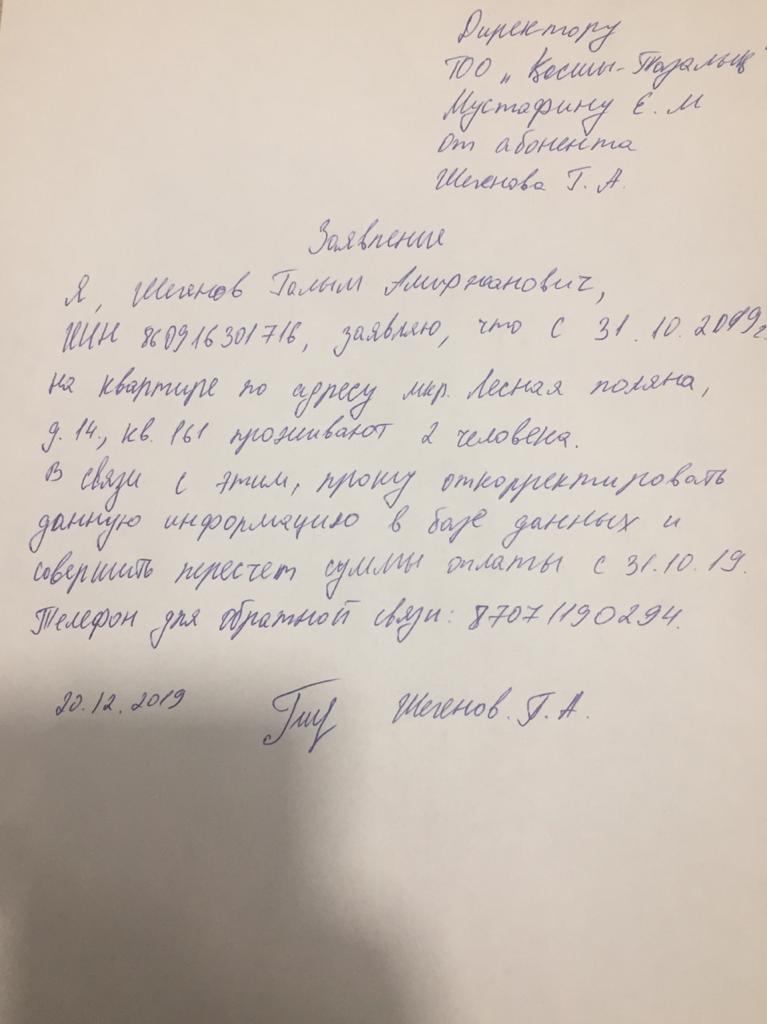 Директору
ТОО „Қосшы-Тазалық"
Мустафину Е. М
от абонента
Шегенова Г. А.
Заявление
Я, Шегенов Галым Амиржанович,
ИИН 860916301716, заявляю, что с 31.10.2019г.
на квартире по адресу мкр. Лесная поляна,
д. 14., кв. 161 проживают 2 человека.
В связи с этим, прошу откорректировать
данную информацию в базе данных и
совершить пересчет суммы оплаты с 31.10.19.
Телефон для обратной связи: 87071190294.
20.12.2019 Шегенов. Г. А.